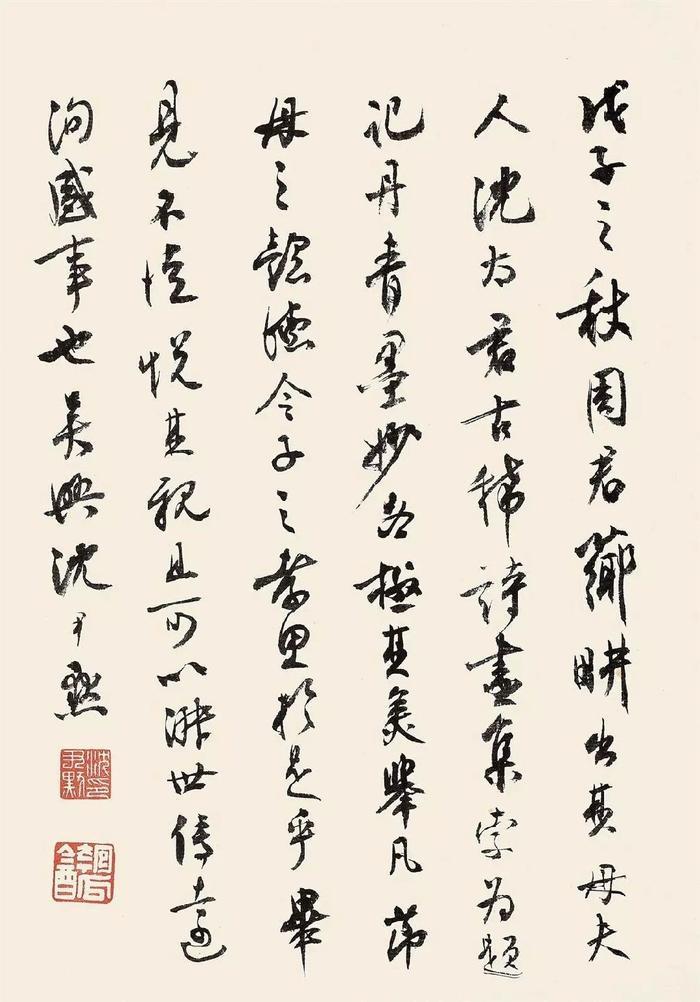 戊子之秋周君薌畊出其母夫
人沈君古稀詩畫集索為題
記丹青墨妙各極其美舉凡節
母之懿德令子之孝思於是乎畢
見不惟悅其親且可以淑世傳遠
洵盛事也吳興沈尹默
沈尹默印